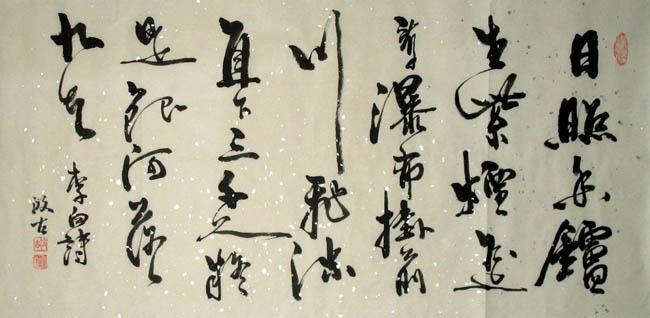 日照香鑪
生紫煙遙
看瀑布掛前
川飛流
直下三千尺疑
是銀河落
九天
李白詩
古